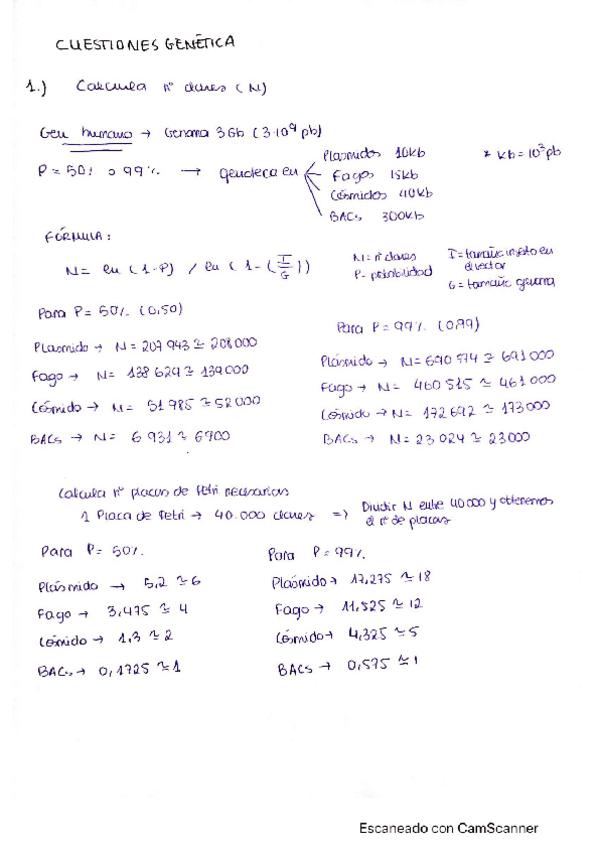 CUESTIONES GENÉTICA
1.) Calcula nº clones (N)
Gen humano → Genoma 3Gb (3·10⁹ pb)
P = 50% o 99% → genoteca en
Plásmidos 10kb
Fago 15kb
Cósmidos 40kb
BACs 300kb
* kb = 10³pb
FÓRMULA:
N = ln (1-P) / ln (1-(I/G))
N = nº clones
P = probabilidad
I = tamaño inserto en el vector
G = tamaño genoma
Para P = 50% (0,50)
Plásmido → N = 207 943 ≃ 208 000
Fago → N = 138 629 ≃ 139 000
Cósmido → N = 51 985 ≃ 52 000
BACs → N = 6 931 ≃ 6900
Para P = 99% (0,99)
Plásmido → N = 690 774 ≃ 691 000
Fago → N = 460 515 ≃ 461 000
Cósmido → N = 172 692 ≃ 173 000
BACs → N = 23 024 ≃ 23 000
Calcula nº placas de Petri necesarias
1 Placa de Petri → 40.000 clones => Dividir N entre 40 000 y obtenemos
el nº de placas
Para P = 50%.
Plásmido → 5,2 ≃ 6
Fago → 3,475 ≃ 4
Cósmido → 1,3 ≃ 2
BACs → 0,1725 ≃ 1
Para P = 99%.
Plásmido → 17,275 ≃ 18
Fago → 11,525 ≃ 12
Cósmido → 4,325 ≃ 5
BACs → 0,575 ≃ 1
Escaneado con CamScanner